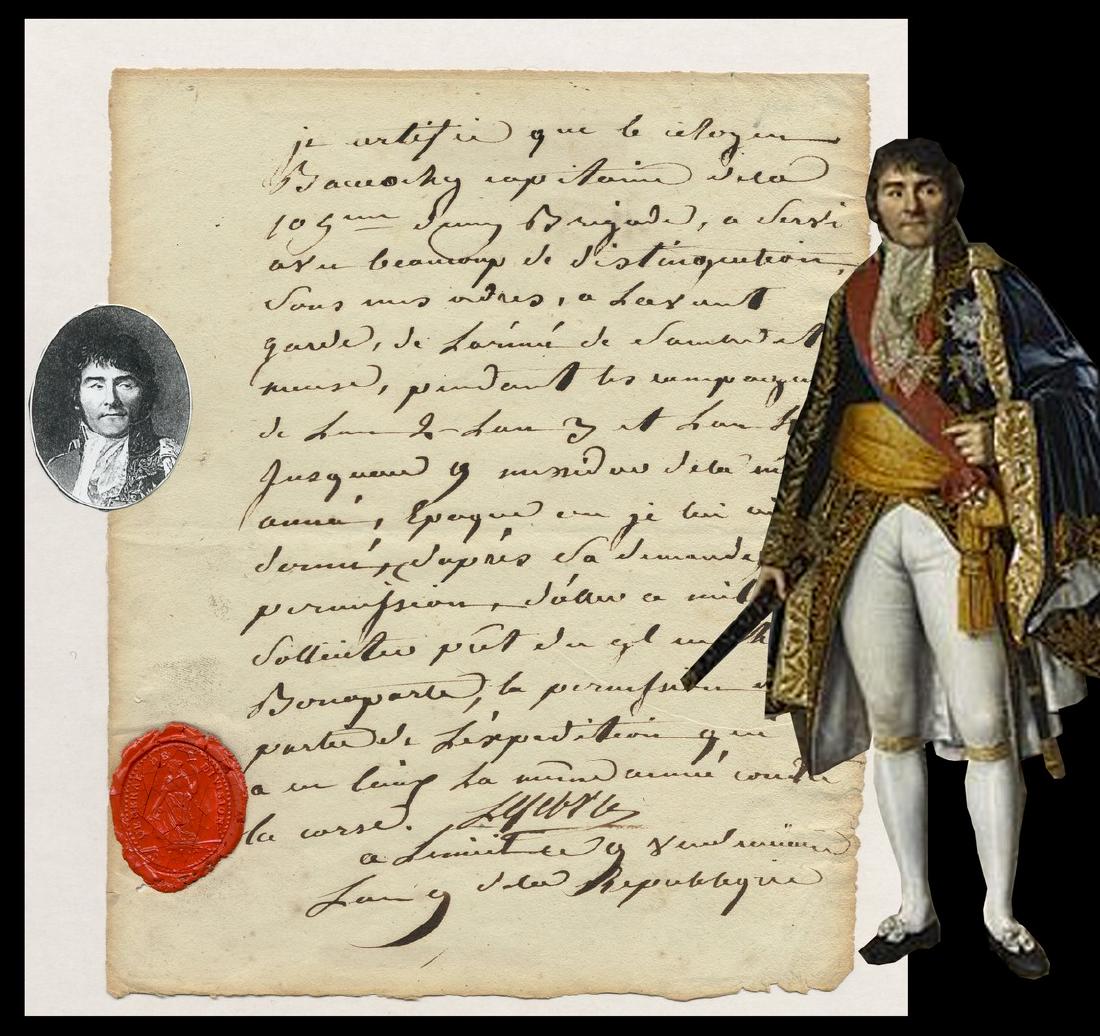 je certifie que le citoyen
Bacciochy capitaine dela
105eme demy Brigade, a servi
avec beaucoup de distinguction,
sous mes ordres, a Lavant
garde, de L'armé de Sambre et
meuse, pendant les campagn
de Lan 2 Lan 3 et Lan
Jusqu'au 9 messidor dela m
anné, Epoque ou je lui ai
donné, d'aprés sa demande
permission, d'aller a mil
Solliciter prét du gl en
Bonaparte, la permission
partie de L'éxpedition qui
a eu lieux La même année contre
la corse. Lefebvre
a 9 Vendemiaire
Lan 9 dela Republique
GENERAL DE DIVISION